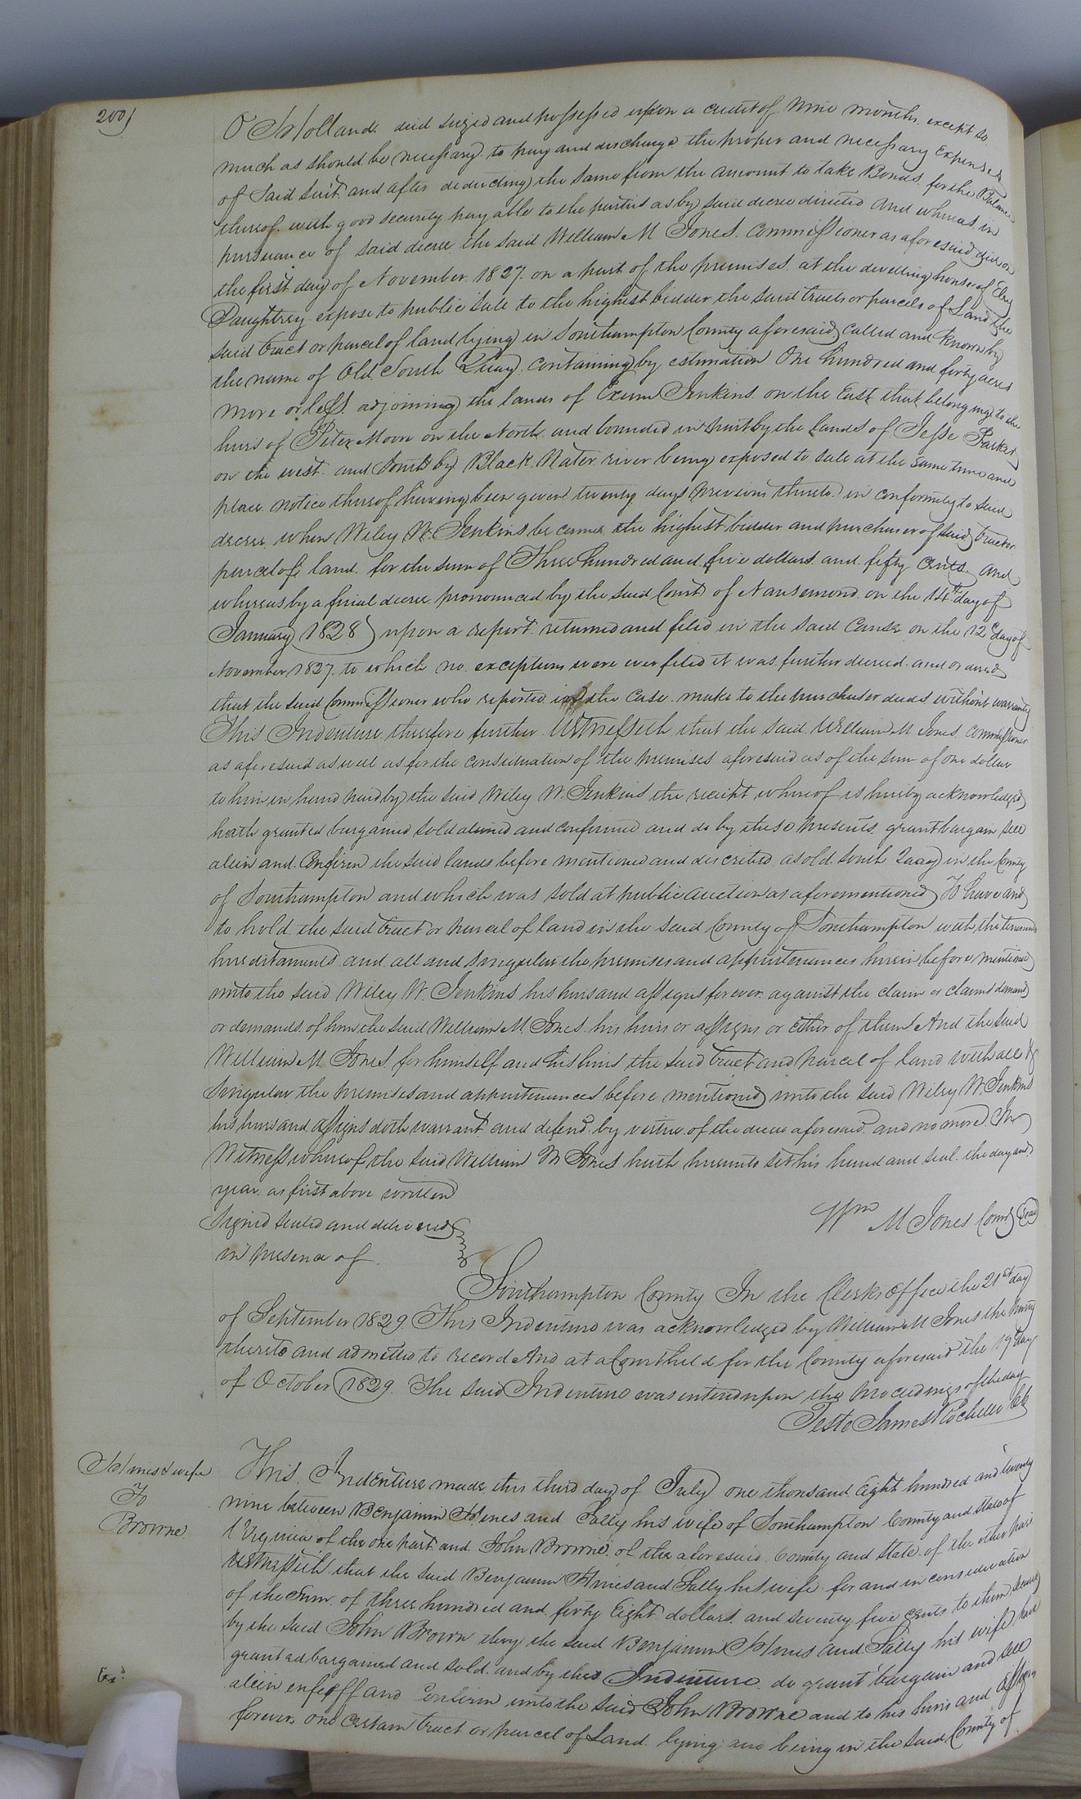 200
O Holland died seized and possessed upon a credit of nine months except so
much as should be necessary to pay and discharge the proper and necessary Expenses
of Said Suit and after deducting the same from the amount to take Bonds for the Balance
thereof with good security payable to the parties as by said decree directed And whereas in
pursuance of said decree the said William M Jones Commissioner as aforesaid did on
the first day of November 1827 on a part of the premises at the dwelling house of Ely
Daughtrey expose to public sale to the highest bidder the said tracts or parcels of Land the
said tract or parcel of land lying in Southampton County aforesaid called and known by
the name of Old South Quay containing by estimation One hundred and forty acres
more or less adjoining the lands of Exum Jenkins on the East that belonging to the
heirs of Peter Moon on the North and bounded in part by the lands of Jesse Parker
on the west and South by Black Water river being exposed to sale at the same time and
place notice thereof having been given twenty days previous thereto in conformity to said
decree when Wiley W. Jenkins became the highest bidder and purchaser of said tract or
parcel of land for the sum of Three hundred and five dollars and fifty Cents And
whereas by a final decree pronounced by the said Court of Nansemond on the 14th day of
January 1828 upon a report returned and filed in the said Cause on the 12th day of
November 1827 to which no exceptions were ever filed it was further decreed and ordered
that the said Commissioner who reported in the case make to the purchaser deeds without warranty
This Indenture therefore further Witnesseth that the said William M Jones Commissioner
as aforesaid as well as for the consideration of the premises aforesaid as of the sum of one dollar
to him in hand paid by the said Wiley W. Jenkins the receipt whereof is hereby acknowledged
hath granted bargained sold aliened and confirmed and do by these presents grant bargain sell
alien and Confirm the said lands before mentioned and described as old South Quay in the County
of Southampton and which was sold at public auction as aforementioned To have and
to hold the said tract or parcel of land in the said County of Southampton with the tenements
hereditaments and all and singular the premises and appurtenances herein before mentioned
unto the said Wiley W. Jenkins his heirs and assigns forever against the claim or claims demand
or demands of him the said William M Jones his heirs or assigns or either of them And the said
William M Jones for himself and his heirs the said tract and parcel of land with all &
singular the premises and appurtenances before mentioned unto the said Wiley W. Jenkins
his heirs and assigns doth warrant and defend by virtue of the decree aforesaid and no more In
Witness whereof the said William M Jones hath hereunto set his hand and seal the day and
year as first above written
Signed sealed and delivered
in presence of
Wm M Jones Comr Seal
Southampton County In the Clerks Office the 21st day
of September 1829 This Indenture was acknowledged by William M Jones the party
thereto and admitted to record And at a Court held for the County aforesaid the 19 day
of October 1829 The said Indenture was entered upon the proceedings of the day
Teste James Rochelle Clk
Hines & wife
To
Browne
This Indenture made this third day of July one thousand Eight hundred and twenty
nine between Benjamin Hines and Sally his wife of Southampton County and state of
Virginia of the one part and John Browne of the aforesaid County and State of the other part
Witnesseth that the said Benjamin Hines and Sally his wife for and in consideration
of the Sum of three hundred and forty Eight dollars and seventy five cents to them
by the said John Brown they the said Benjamin Hines and Sally his wife have
granted bargained and sold and by this Indenture do grant bargain and sell
alien enfeoff and Confirm unto the said John Browne and to his heirs and assigns
forever one certain tract or parcel of Land lying and being in the said County of
Exd